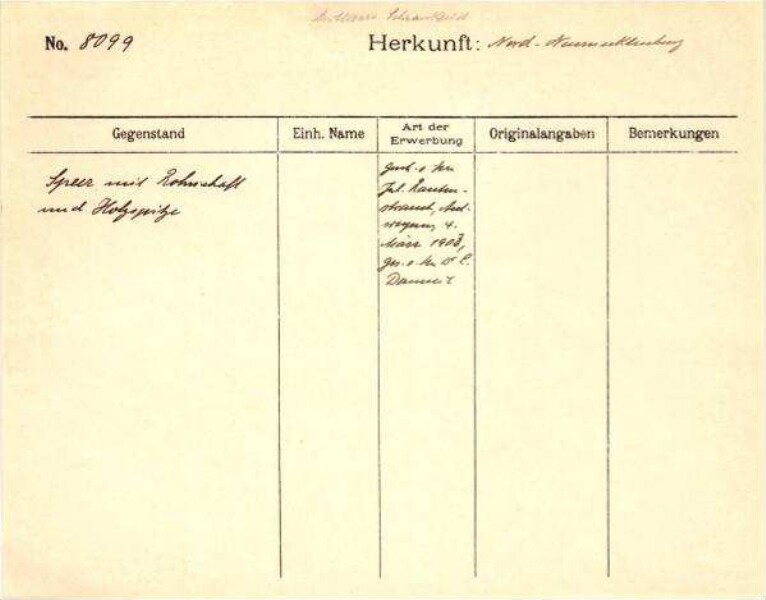 No. 8099
Herkunft: Nord-Neumecklenburg
Gegenstand
Einh. Name
Art der Erwerbung
Originalangaben
Bemerkungen
Speer mit Rohrschaft
und Holzspitze
Gesch. v. Frn
Jul. Rauten-
strauch, Ant-
werpen, 4.
März 1903,
ges. v. Hr. Dr E.